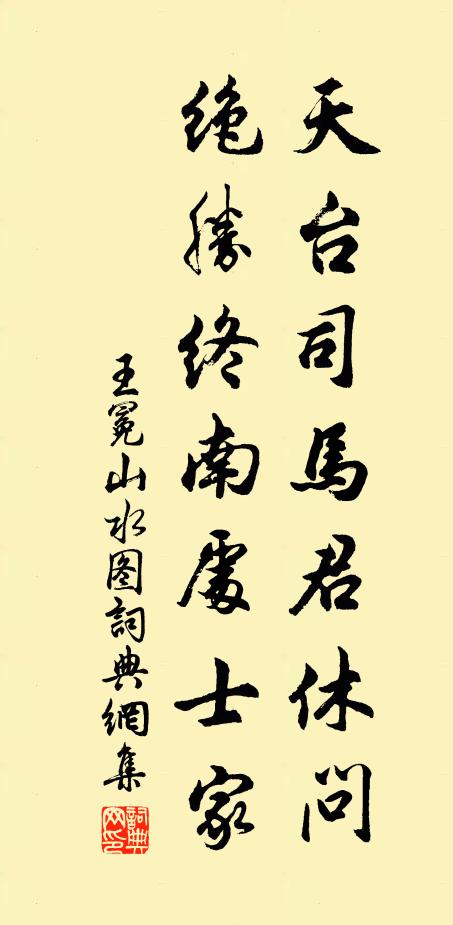 天台司馬君休問
绝勝终南處士家
王冕山水图詞典網集
詞典网印